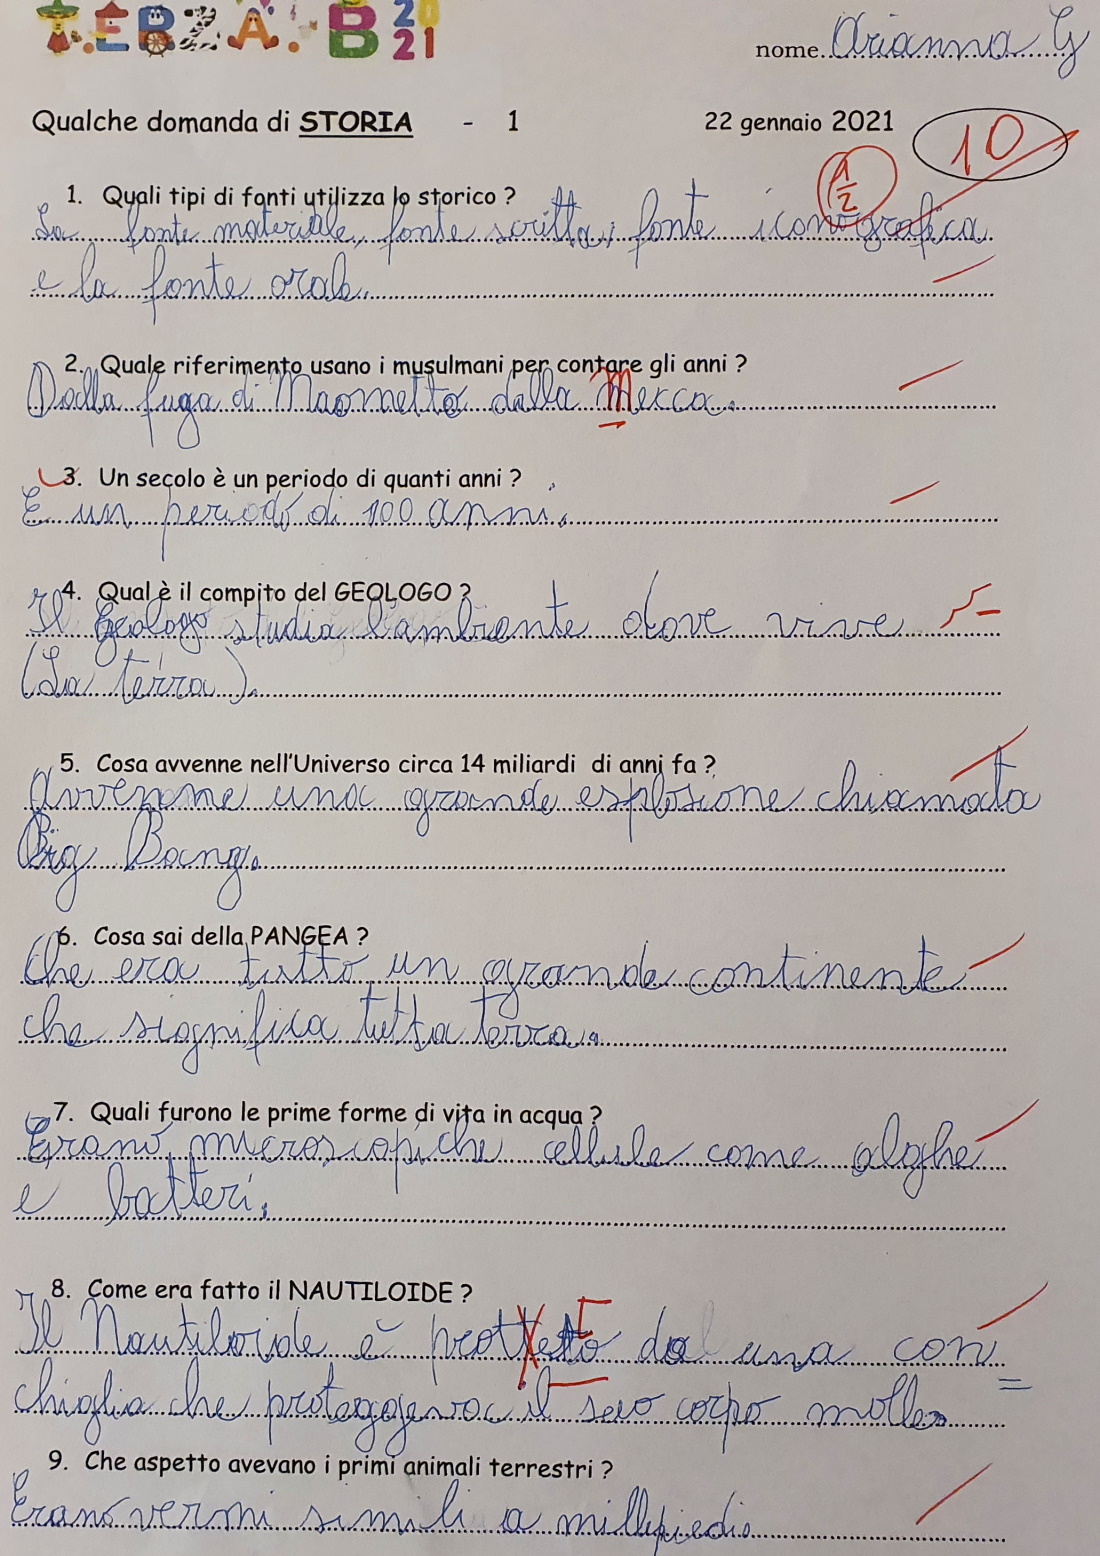 TERZA B 20
21
nome Arianna G
Qualche domanda di STORIA - 1 22 gennaio 2021 10
1. Quali tipi di fonti utilizza lo storico ?
La fonte materiale, fonte scritta, fonte iconografica
e la fonte orale.
2. Quale riferimento usano i musulmani per contare gli anni ?
Dalla fuga di Maometto dalla Mecca.
3. Un secolo è un periodo di quanti anni ?
È un periodo di 100 anni.
4. Qual è il compito del GEOLOGO ?
Il Geologo studia l'ambiente dove vive
(La terra).
5. Cosa avvenne nell'Universo circa 14 miliardi di anni fa ?
Avvenne una grande esplosione chiamata
Big Bang.
6. Cosa sai della PANGEA ?
Che era tutto un grande continente
che significa tutta terra.
7. Quali furono le prime forme di vita in acqua ?
Erano microscopiche cellule come alghe
e batteri.
8. Come era fatto il NAUTILOIDE ?
Il Nautiloide è protteto da una con
chiglia che proteggeva il suo corpo molle.
9. Che aspetto avevano i primi animali terrestri ?
Erano vermi simili a millepiedi.